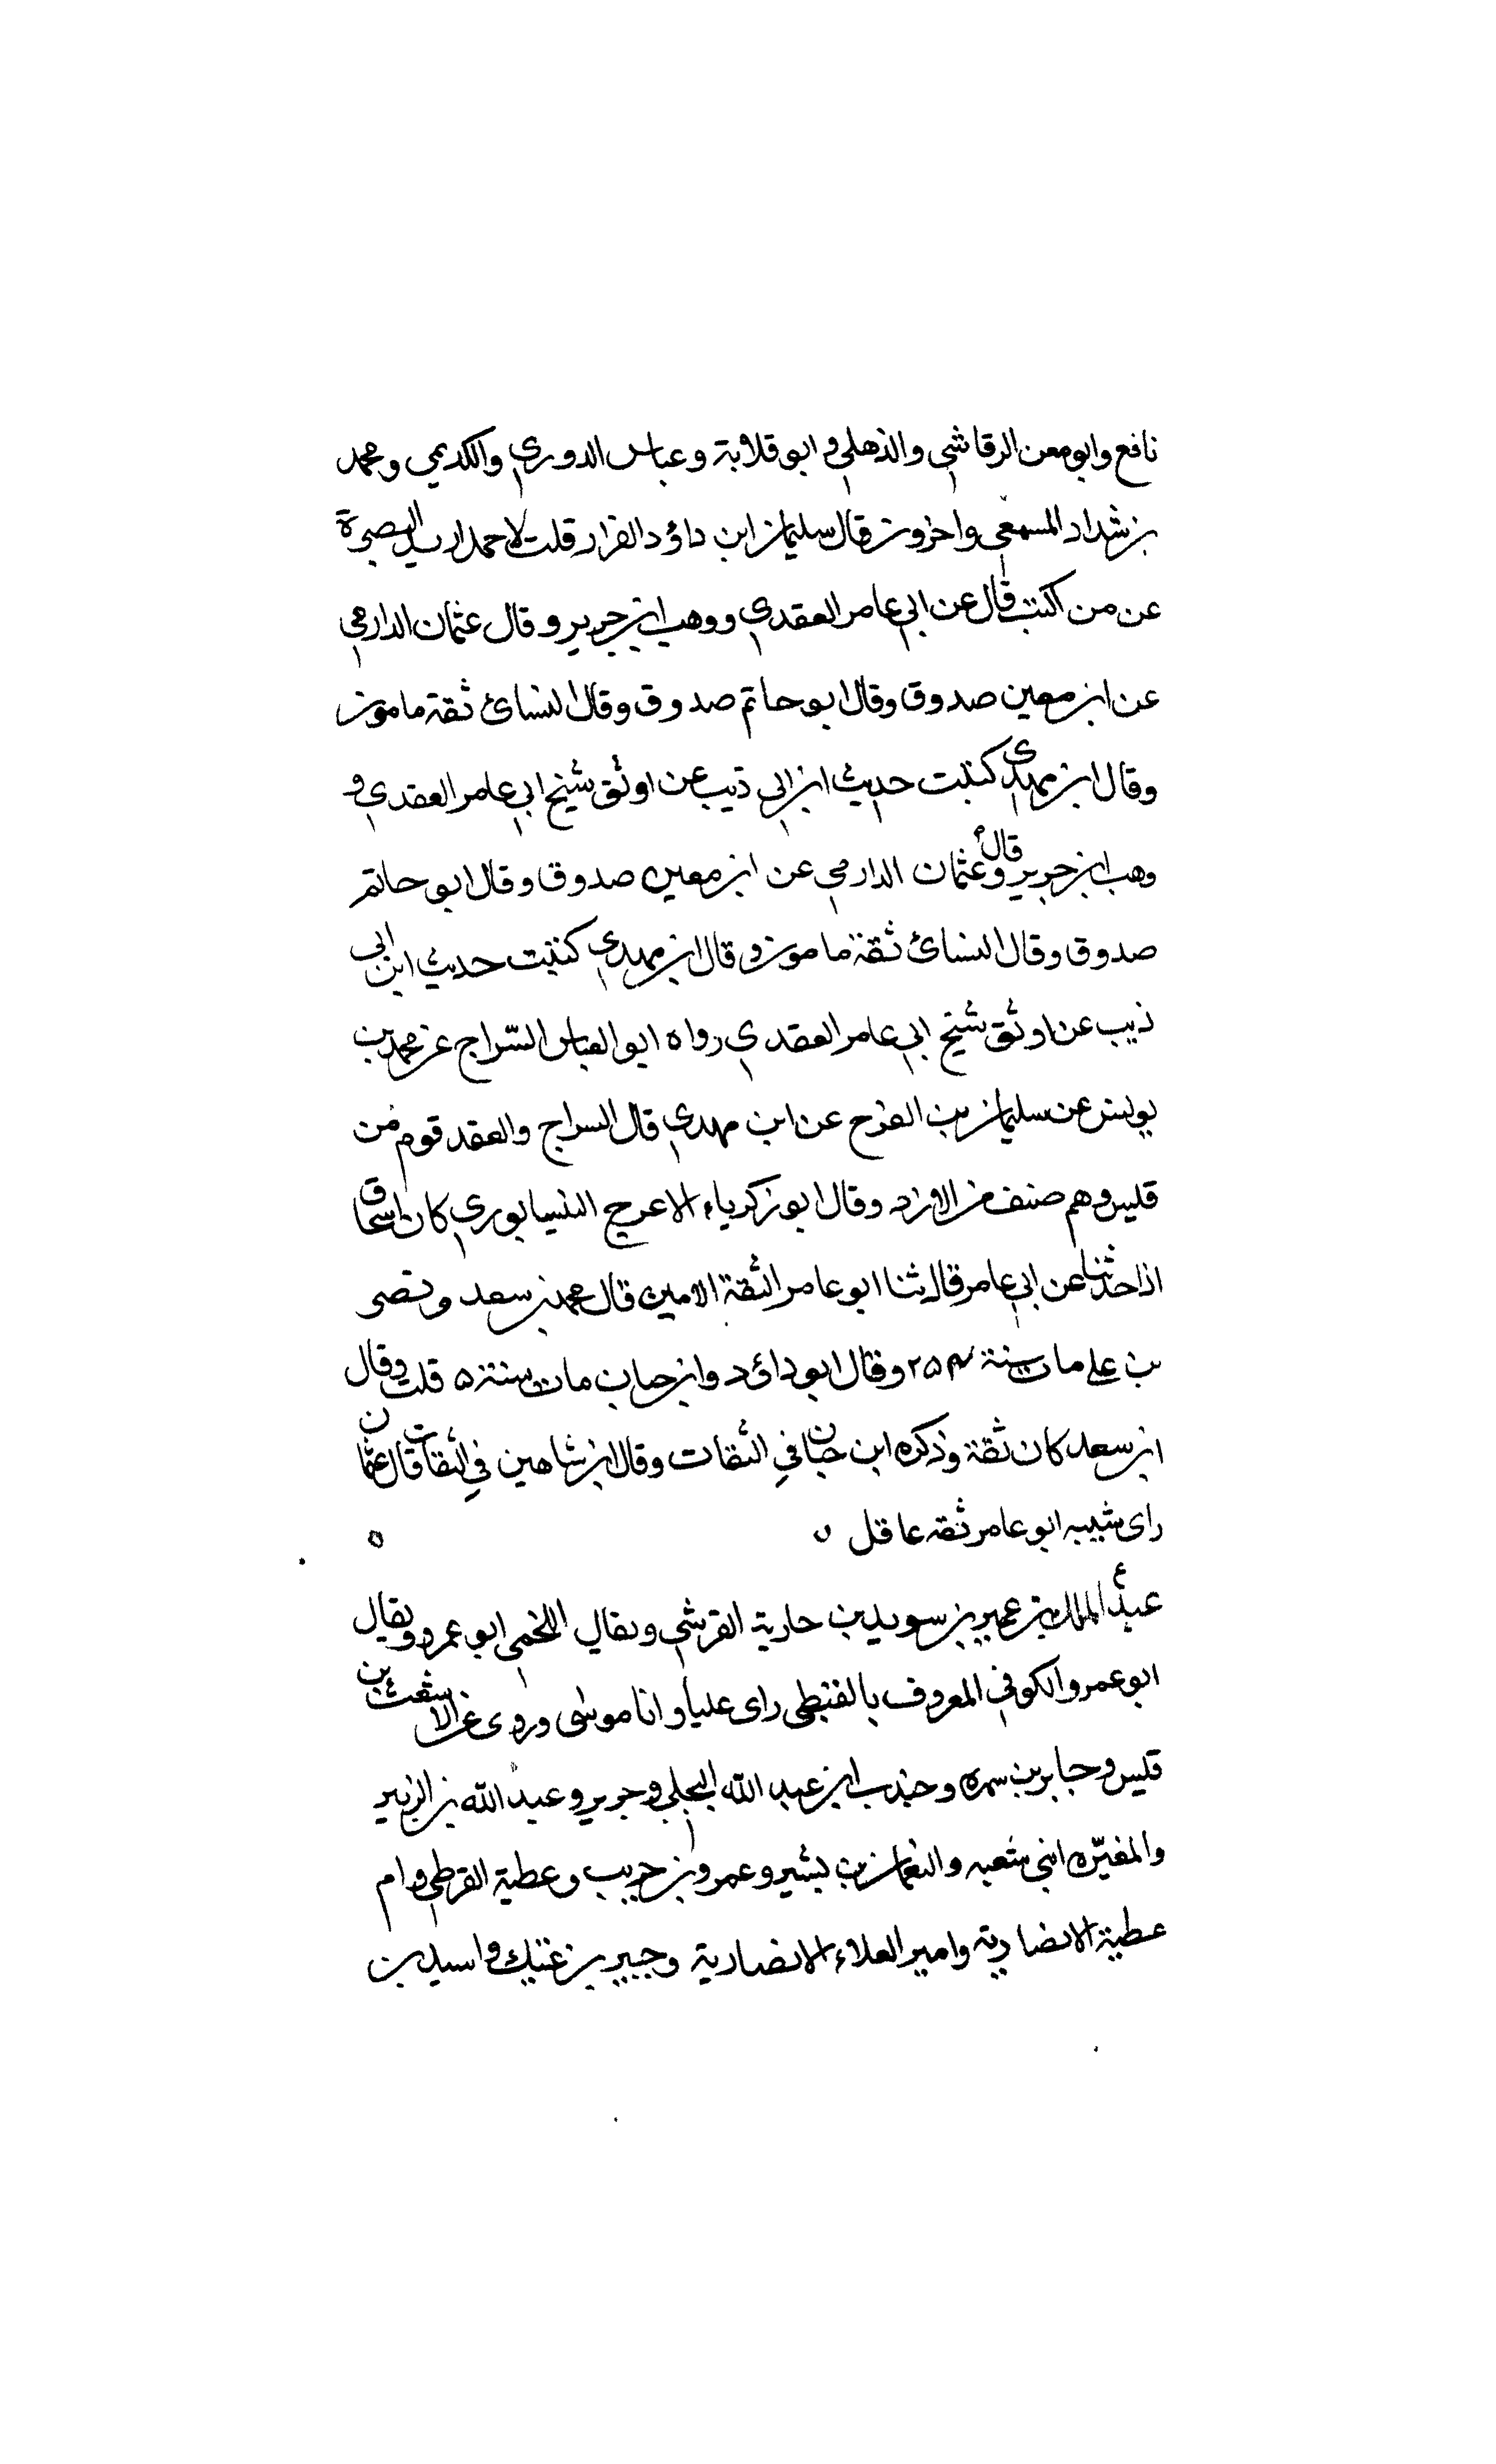 نافع وابو معن الرقاشي والذهلي و ابو قلابة وعباس الدوري والكديمي ومحمد
بن شداد المسمعي واخرون قال سليمان ابن داؤد القزاز قلت لاحمد اريد البصرة
عن من اكتب قال عن ابي عامر العقدي ووهب ابن جرير وقال عثمان الدارمي
عن ابن معين صدوق وقال ابو حاتم صدوق وقال النسائ ثقة مامون
وقال ابن مهدي كتبت حديث ابن ابي ذيب عن اوثق شيخ ابي عامر العقدي و
وهب ابن جرير وقال عثمان الدارمي عن ابن معين صدوق وقال ابو حاتم
صدوق وقال النسائ ثقة مامون وقال ابن مهدي كتبت حديث ابن ابي
ذيب عن اوثق شيخ ابي عامر العقدي رواه ابو العباس السّراج عن محمد بن
يونس عن سليمان بن الفرج عن ابن مهدي قال السراج والعقد قوم من
قيس وهم صنف من الازد وقال ابو زكرياء الاعرج النيسابوري كان اسحاق
اذا حدثنا عن ابي عامر قال ثنا ابو عامر الثقة الامين قال محمد بن سعد ونصر
بن علي مات سنة ٢٥٤ وقال ابو داؤد وابن حبان مات سنة ٥ قلت وقال
ابن سعد كان ثقة وذكره ابن حبان في الثقات وقال ابن شاهين في الثقات قال عثمان
راى شيبه ابو عامر ثقه عاقل ٥
عبد الملك بن عمير بن سويد بن حارية القرشي ويقال اللخمي ابو عمرو ويقال
ابو عمرو الكوفي المعروف بالقبطي راى عليا وابا موسى وروى عن الاشعث بن
قيس وجابر بن سمره وجندب ابن عبد الله البجلي وجرير وعبد الله بن الزبير
والمغيّره ابني شعبه والنعمان بن بشير وعمرو بن حريب وعطية القرظي وام
عطية الانصارية وامير العلاء الانصارية وجبير بن عتيك واسيد بن